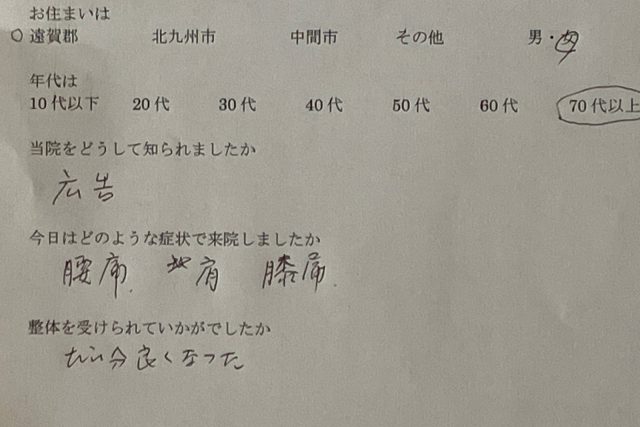 お住まいは
○ 遠賀郡 北九州市 中間市 その他 男・女
年代は
10代以下 20代 30代 40代 50代 60代 70代以上
当院をどうして知られましたか
広告
今日はどのような症状で来院しましたか
腰痛 肩 膝痛
整体を受けられていかがでしたか
分良くなった